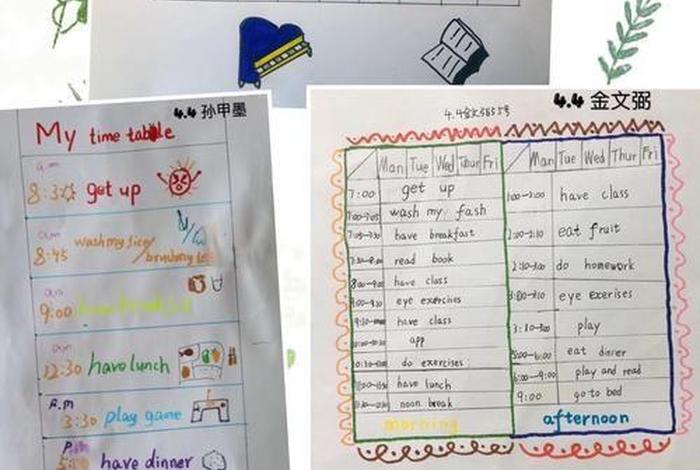 4.4 孙甲墨
My time table
a.m
8:30 get up
a.m
8:45 wash my face/
brushmy
a.m
9:00 have breakfast
a.m
12:30 have lunch
P.m
3:30 play game
P.m
have dinner
4.4 金文弼
4.4金文弼
Man Tue Wed Thur Fri
7:00 get up
7:00-7:05 wash my fash
have breakfast
read book
have class
eye exercises
have class
app
do exercises
have lunch
noon break
morning
Man Tue Wed Thur Fri
1:00-2:00 have class
2:00-2:10 eat fruit
2:10-3:00 do homework
3:00-3:10 eye exerises
play
5:00-6:00 eat dinrer
6:00-9:00 play and read
9:00 go to bed
afternoon